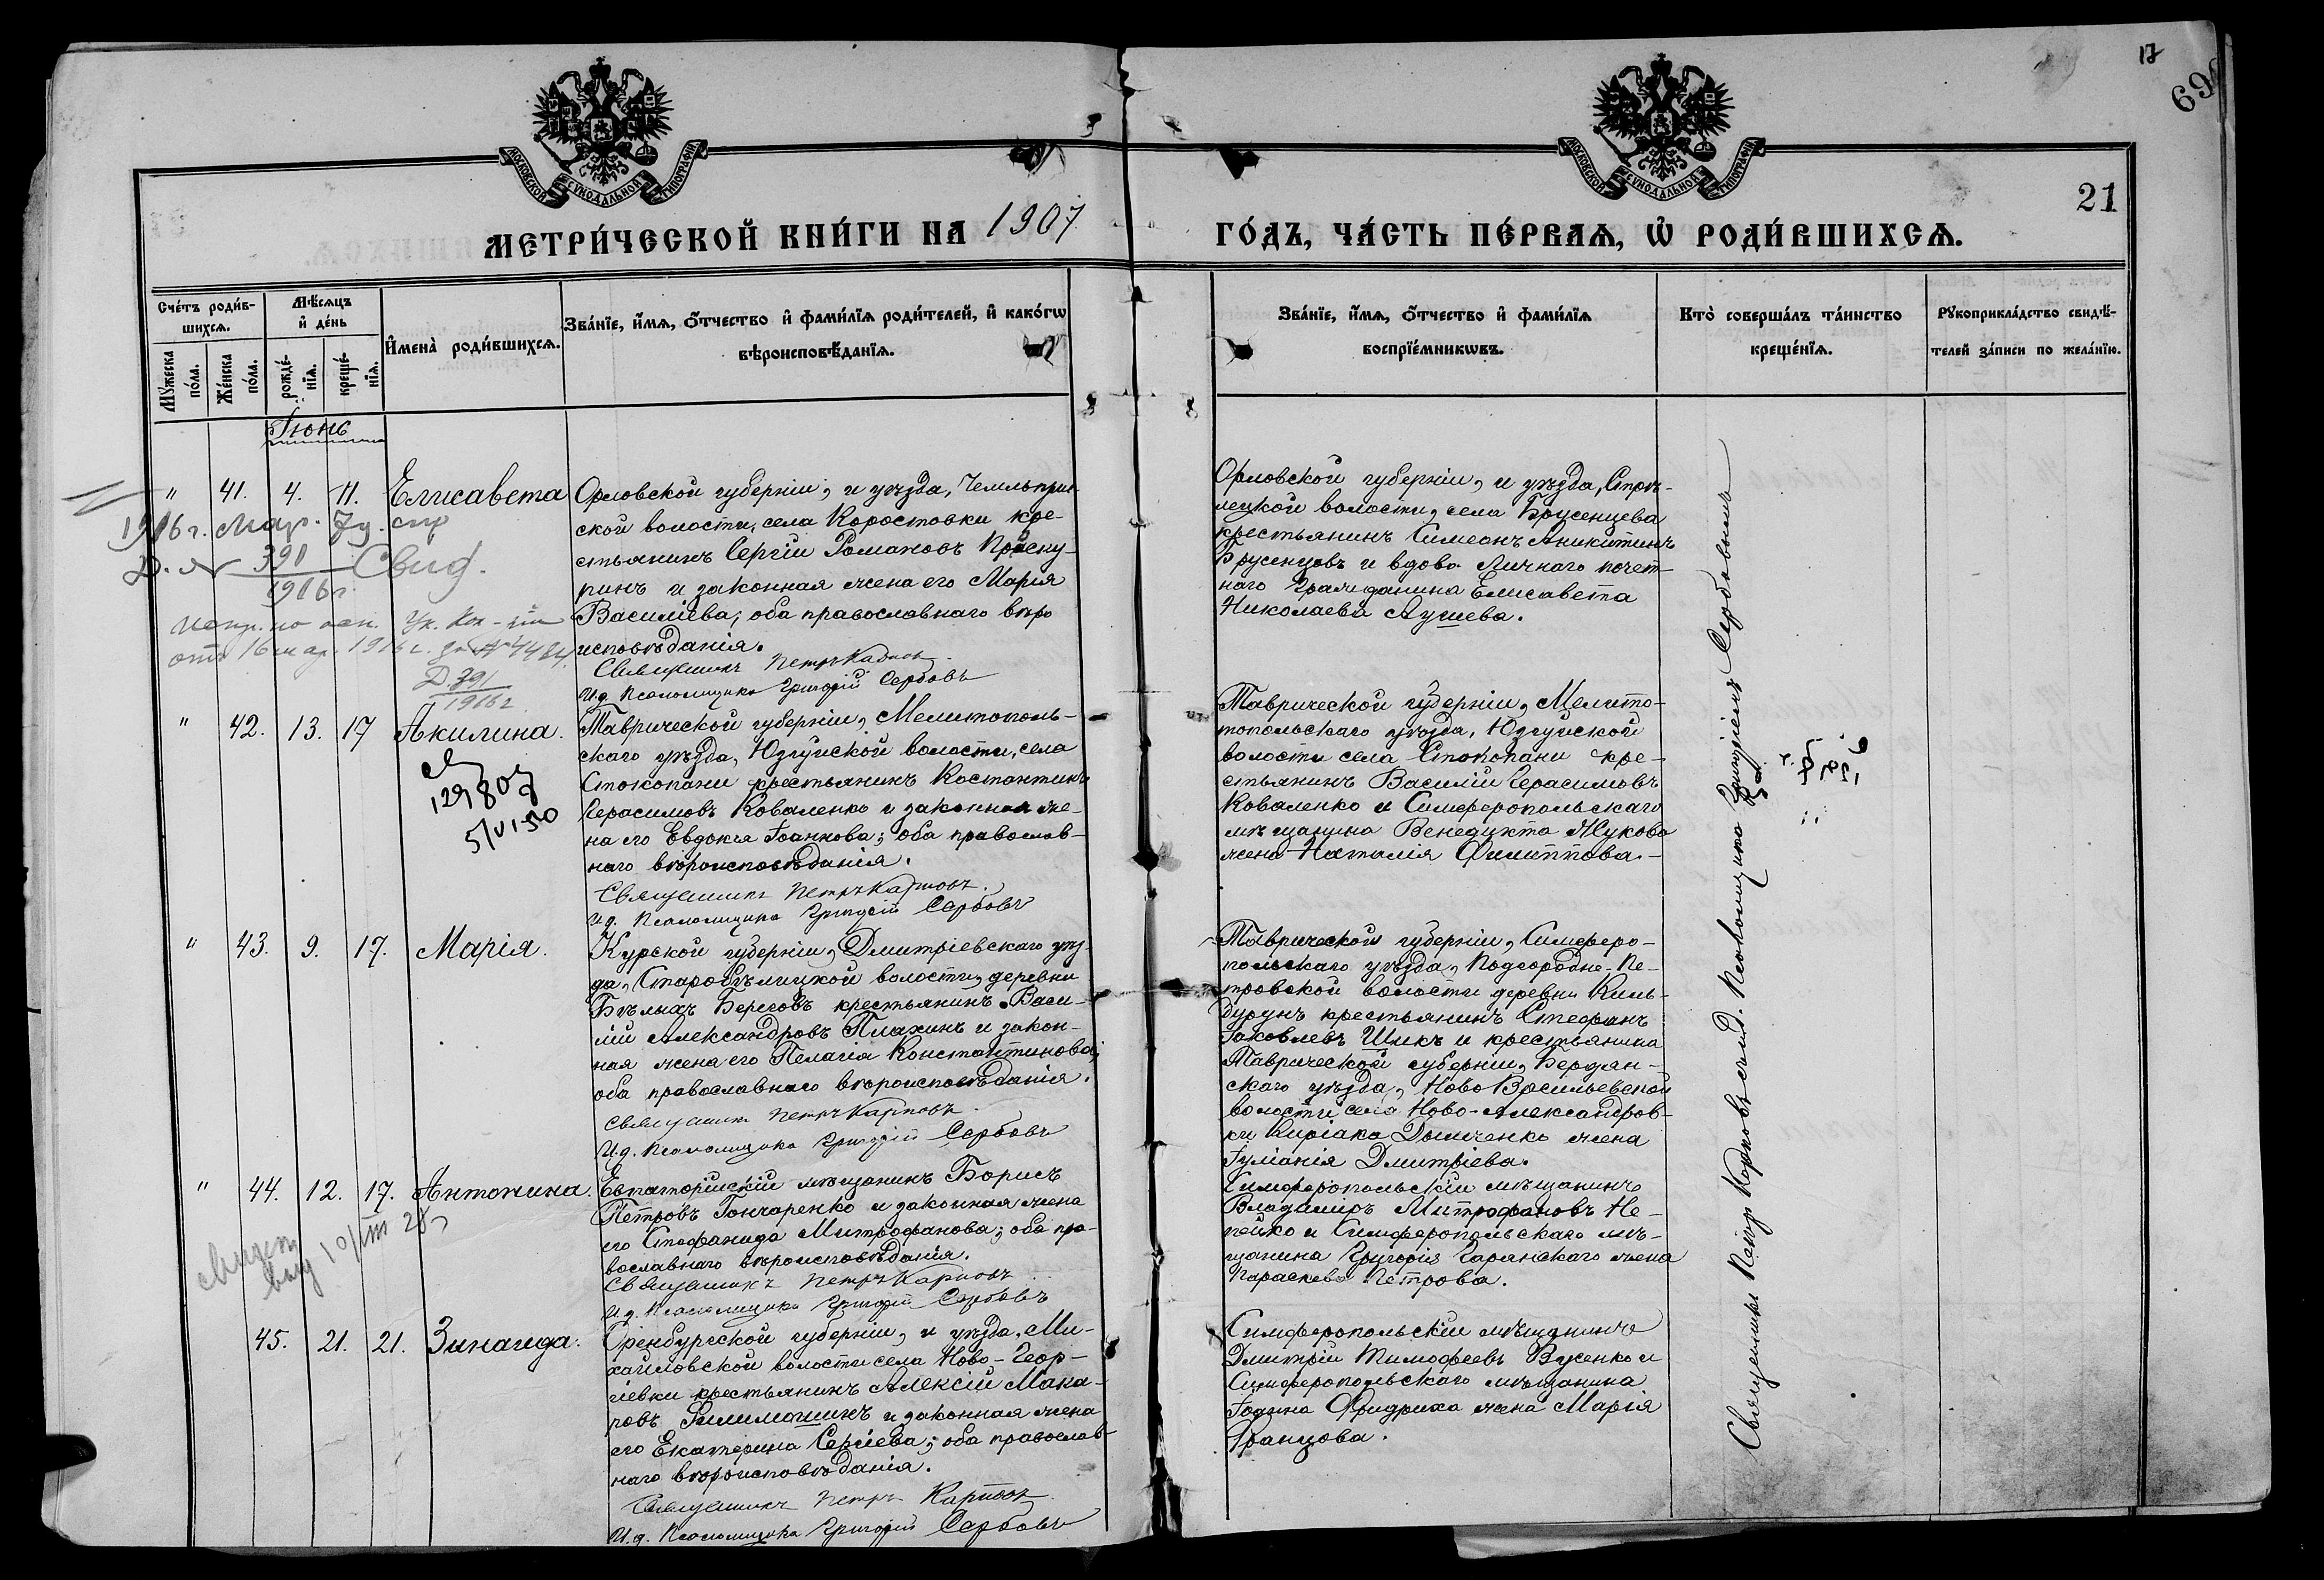 17
690
МОСКОВСКОЙ СѴНОДАЛЬНОЙ ТИПОГРАФІИ
МОСКОВСКОЙ СѴНОДАЛЬНОЙ ТИПОГРАФІИ
21
МЕТРИ́ЧЕСКОЙ КНИ́ГИ НА 1907 ГО́ДЪ, ЧА́СТЬ ПЕ́РВАѦ, Ѡ҆ РОДИ́ВШИХСѦ.
Сче́тъ роди́в-
шихсѧ.
Мꙋ́жеска по́ла.
Же́нска по́ла.
Мѣ́сѧцъ
и҆ де́нь
рожде́-
нїѧ.
креще́-
нїѧ.
И҆мена̀ роди́вшихсѧ.
Зва́нїе, и҆́мѧ, ѻ҆́тчество и҆ фами́лїѧ роди́телей, и҆ како́гѡ
вѣроисповѣ́данїѧ.
Зва́нїе, и҆́мѧ, ѻ҆́тчество и҆ фами́лїѧ
воспрїе́мникѡвъ.
Кто̀ соверша́лъ та́инство
креще́нїѧ.
Рꙋкоприкла́дство свидѣ́-
телей за́писи по жела́нїю.
Іюнь
" 41. 4. 11. Елисавета
Орловской губерніи, и уѣзда,
ской волости, села Коростовки кре-
стьянинъ Сергій Романовъ Проску-
ринъ и законная жена его Марія
Василіева, оба православнаго вѣро
исповѣданія.
Священникъ Петръ Карповъ
И.д. Псаломщика Григорій Сербовъ
1916 г. Мар. 7 д.
Д. № 390
1916 г.
Свид.
испр. по
отъ 16 мар. 1916 г. за № 4484
Д. 391
1916 г.
Орловской губерніи, и уѣзда, Стрѣ-
лецкой волости, села Брусенцева
крестьянинъ Симеонъ Аникитинъ
Брусенцовъ и вдова Личнаго почет-
наго Гражданина Елисавета
Николаева Аушева.
" 42. 13. 17 Акилина.
129807
5/VI-50
Таврической губерніи, Мелитополь-
скаго уѣзда, Юзгуйской волости, села
Стокопани крестьянинъ Костантинъ
Герасимовъ Коваленко и законная же-
на его Евдокія Іоаннова; оба православ-
наго вѣроисповѣданія.
Священникъ Петръ Карповъ.
И.д. Псаломщика Григорій Сербовъ
Таврической губерніи, Мелито-
топольскаго уѣзда, Юзгуйской
волости села Стокопани кре-
стьянинъ Василій Герасимовъ
Коваленко и Симферопольскаго
мѣщанина Венедикта Жукова
жена Наталія Филиппова.-
" 43. 9. 17. Марія.
Курской губерніи, Дмитріевскаго уѣз-
да, Старобѣлицкой волости, деревни
Бѣлыхъ Береговъ крестьянинъ Васи-
лій Александровъ Плахинъ и закон-
ная жена его Пелагія Константинова;
оба православнаго вѣроисповѣданія.
Священникъ Петръ Карповъ
И.д. Псаломщика Григорій Сербовъ
Таврической губерніи, Симферо-
польскаго уѣзда, Подгородне-Пе-
тровской волости деревни Киль-
бурунъ крестьянинъ Стефанъ
Іаковлевъ Шикъ и крестьянина
Таврической губерніи, Бердян-
скаго уѣзда, Ново Васильевской
волости села Ново-Александров-
ки Киріака Дымченко жена
Іуліанія Дмитріева.
" 44. 12. 17. Антонина.
Евпаторійскій мѣщанинъ Борисъ
Петровъ Гончаренко и законная жена
его Стефанида Митрофанова; оба пра-
вославнаго вѣроисповѣданія.
Священникъ Петръ Карповъ
И.д. Псаломщика Григорій Сербовъ
Симферопольскій мѣщанинъ
Владиміръ Митрофановъ Не-
пейко и Симферопольскаго мѣ-
щанина Григорія Гаранскаго жена
Параскева Петрова.
45. 21. 21. Зинаида.
Оренбургской губерніи, и уѣзда, Ми-
хайловской волости села Ново-Геор-
гіевки крестьянинъ Алексій Мака-
ровъ Филимошинъ и законная жена
его Екатерина Сергіева; оба православ-
наго вѣроисповѣданія.
Священникъ Петръ Карповъ
И.д. Псаломщика Григорій Сербовъ
Симферопольскій мѣщанинъ
Дмитрій Тимофеевъ Вусенко и
Симферопольскаго мѣщанина
Іоанна Фридриха жена Марія
Францова.
Священникъ Петръ Карповъ съ и.д. Псаломщика Григоріемъ Сербовымъ